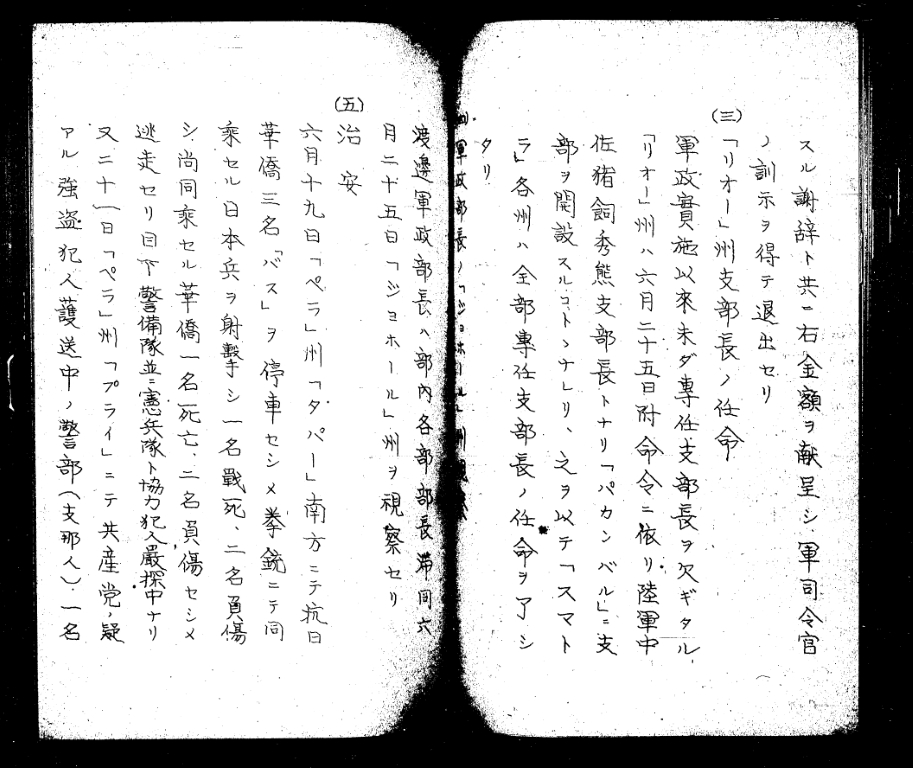 スル謝辞ト共ニ右金額ヲ献呈シ軍司令官
ノ訓示ヲ得テ退出セリ
(三)
「リオー」州支部長ノ任命
軍政實施以來未ダ專任支部長ヲ欠ギタル
「リオー」州ハ六月二十五日附命令ニ依リ陸軍中
佐猪飼秀熊支部長トナリ「パカンバル」ニ支
部ヲ開設スルコトヽナレリ、之ヲ以テ「スマト
ラ」各州ハ全部專任支部長ノ任命ヲ了シ
タリ
(四)軍政部長ノ「ジョホール」州視察
渡邊軍政部長ハ部內各部部長帶同六
月二十五日「ジョホール」州ヲ視察セリ
(五)
治安
六月十九日「ペラ」州「タパー」南方ニテ抗日
華僑三名「バス」ヲ停車セシメ拳銃ニテ同
乘セル日本兵ヲ射擊シ一名戰死、二名負傷
シ尚同乘セル華僑一名死亡、二名負傷セシメ
逃走セリ目下警備隊並ニ憲兵隊ト協力犯人嚴探中ナリ
又二十一日「ペラ」州「プライ」ニテ共産党ノ疑
アル強盗犯人護送中ノ警部(支那人)一名